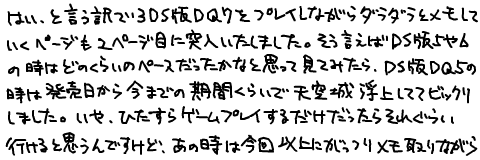 はい、と言う訳で3DS版DQ7をプレイしながらダラダラとメモして
いくページも2ページ目に突入いたしました。そう言えばDS版5や6
の時はどのくらいのペースだったかなと思って見てみたら、DS版DQ5の
時は発売日から今までの期間くらいで天空城浮上しててビックリ
しました。いや、ひたすらゲームプレイするだけだったらそれぐらい
行けると思うんですけど、あの時は今回以上にがっつりメモ取りながら